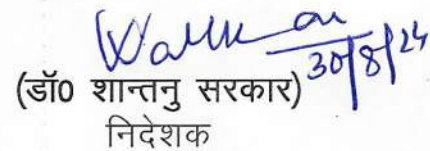 30/8/24
(डॉ0 शान्तनु सरकार)
निदेशक